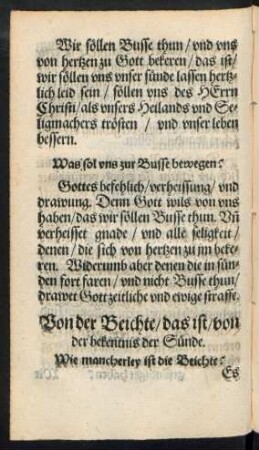 Wir söllen Busse thun/ vnd vns
von hertzen zu Gott bekeren/ das ist/
wir söllen vns vnser sünde lassen hertz-
lich leid sein/ söllen vns des HErrn
Christi/ als vnsers Heilands vnd Se-
ligmachers trösten / vnd vnser leben
bessern.
Was sol vns zur Busse bewegen?
Gottes befehlich/ verheissung/ vnd
drawung. Denn Gott wils von vns
haben/ das wir söllen Busse thun. Vñ
verheisset gnade / vnd alle seligkeit/
denen/ die sich von hertzen zu jm beke-
ren. Widerumb aber denen die in sün-
den fort faren/ vnd nicht Busse thun/
drawet Gott zeitliche vnd ewige straffe.
Von der Beichte/ das ist/ von
der bekentnis der Sünde.
Wie mancherley ist die Beichte?
Es